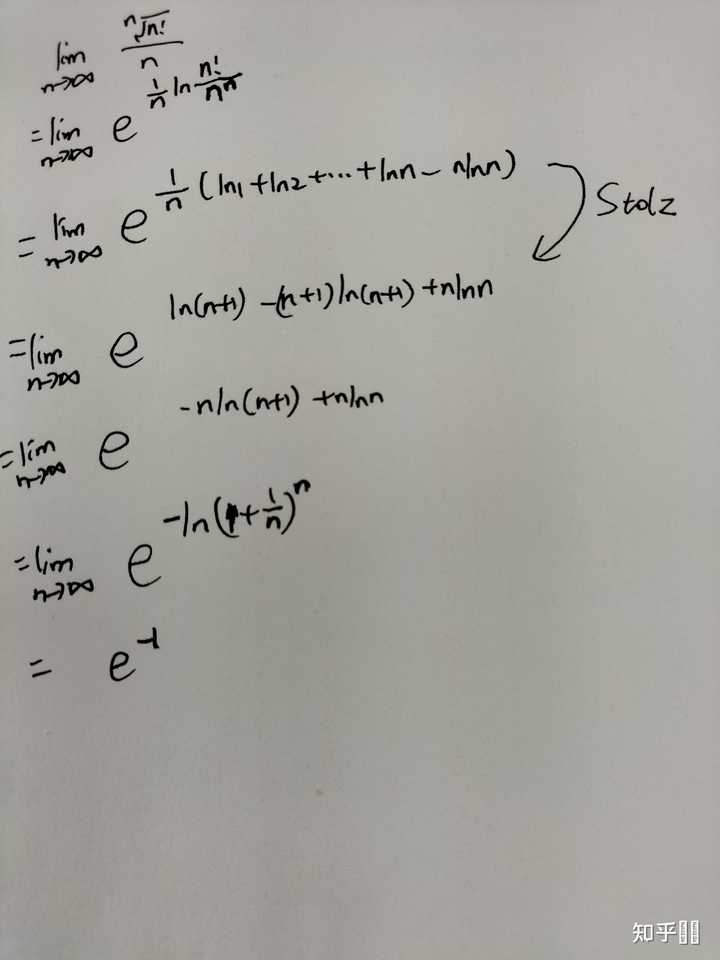 lim n→∞ ⁿ√n! / n
= lim n→∞ e^{1/n ln n!/nⁿ}
= lim n→∞ e^{1/n (ln1 + ln2 + ··· + lnn - nlnn)} Stolz
= lim n→∞ e^{ln(n+1) - (n+1)ln(n+1) + nlnn}
= lim n→∞ e^{-nln(n+1) + nlnn}
= lim n→∞ e^{-ln(1+1/n)ⁿ}
= e⁻¹
知乎